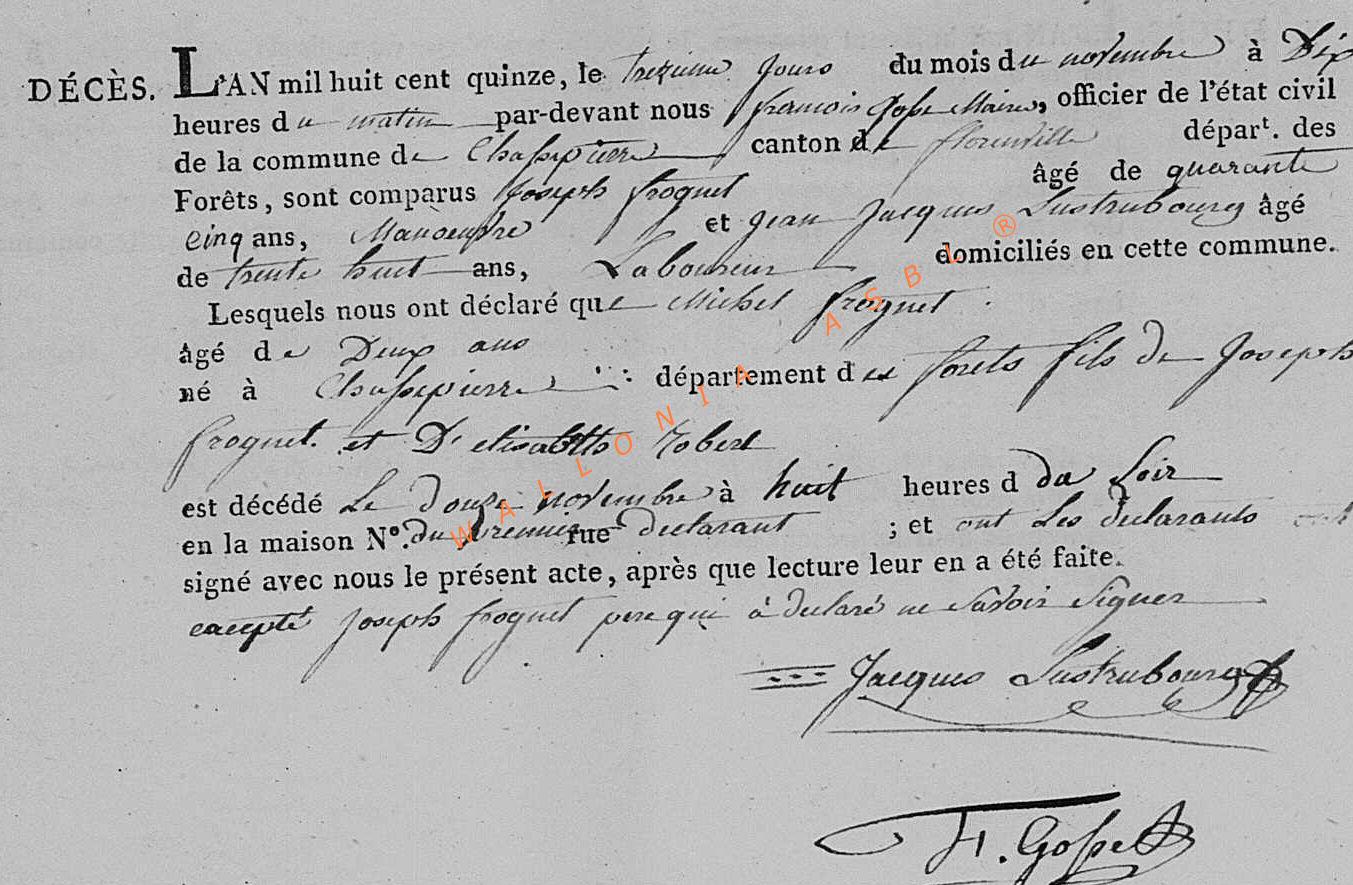 DÉCÈS. L'AN mil huit cent quinze, le treizieme Jours du mois du novembre à Dix
heures du matin par-devant nous francois Gosse Maire, officier de l'état civil
de la commune de Chassepierre canton de florenville départ. des
Forêts, sont comparus Joseph froguet âgé de quarante
Cinq ans, Manoeuvre et jean Jacques Lustrubourg âgé
de trente huit ans, Laboureur domiciliés en cette commune.
Lesquels nous ont déclaré que Michel froguet
âgé de Deux ans
né à Chassepierre département des forets fils de Joseph
froguet. et D'elisabeth robert
est décédé Le douze novembre à huit heures d du Soir
en la maison N°. du premier rue declarant ; et ont Les declarants
signé avec nous le présent acte, après que lecture leur en a été faite.
excepté joseph froguet pere qui à declaré ne Savoir Signer
Jacques Lustrubourg
F. Gosse
WALLONIA ASBL ®